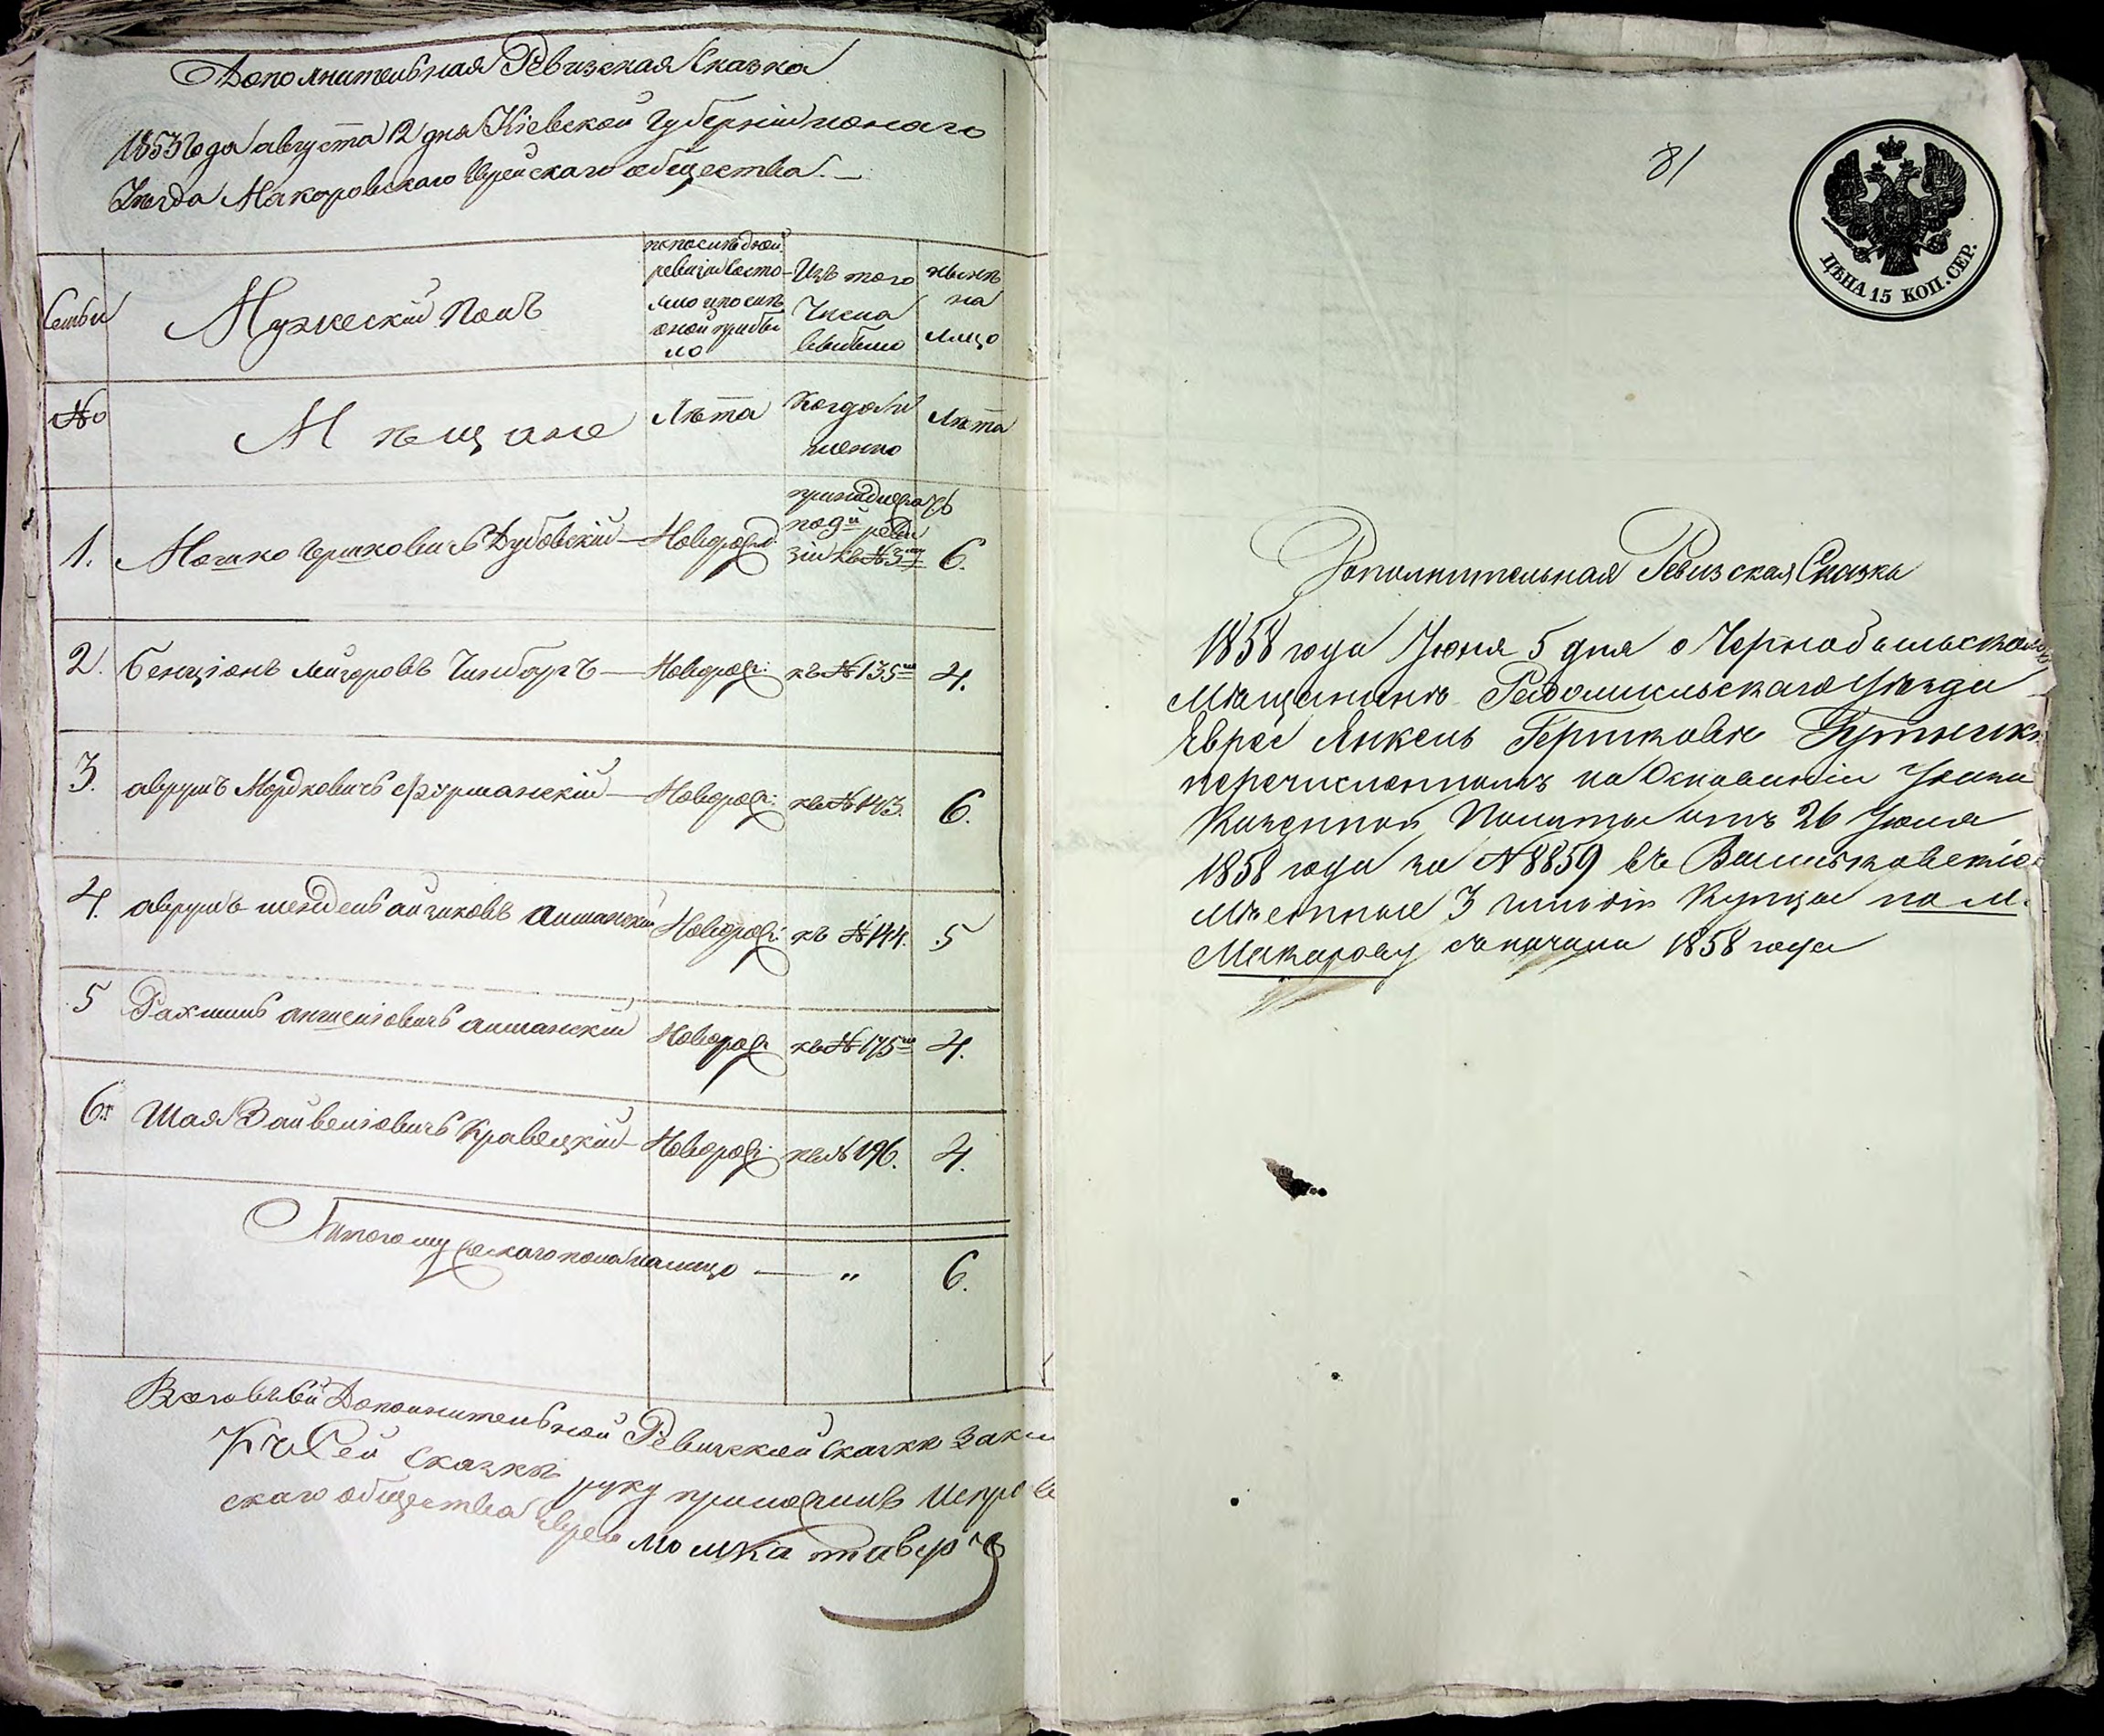 Дополнительная Ревизская Сказка
1853 года августа 12 дня Кіевской Губерніи
Уезда Макоровскаго Еврейскаго общества. —
Семьи
Мужескій Полъ
по последней
ревизіи состо-
яло и после
оной прибы
ло
Изъ того
Числа
выбыло
ныне
на
лицо
№
Мещане
Лета
Когда и
менно
Лета
1. Мошко Ершковичъ Дубовскій — Новорожд. 6.
ревизіи къ № 3му
2. Бенціонъ Лейзоровъ Гинбургъ — Новорож: къ № 135му 4.
3. аврумъ Мордковичъ Фурманскій — Новорож: къ № 143. 6.
4. аврумъ шендель айзиковъ Новорож: къ № 144. 5
5 Рахмиль Новорож: къ № 175му 4.
6. Шая Зайвеліовичъ Кравецкій — Новорож: къ № 196. 4.
Итого мужескаго пола налицо — " 6.
Дополнительной Ревизской сказке
Къ Сей сказке руку приложилъ
скаго общества Еврей мошка
81
ЦѢНА 15 КОП. СЕР.
Дополнительная Ревизская Сказка
1858 года Іюня 5 дня о Чернобыльскомъ
Мещанине Радомысльскаго Уезда
Еврее Янкель Гершковъ
перечисленномъ на Основаніи Указа
Казенной Палаты отъ 26 Іюня
1858 года за № 8859 въ Васильковскіе
Местные 3 гильдіи Купцы по М.
Макарову съ начала 1858 года